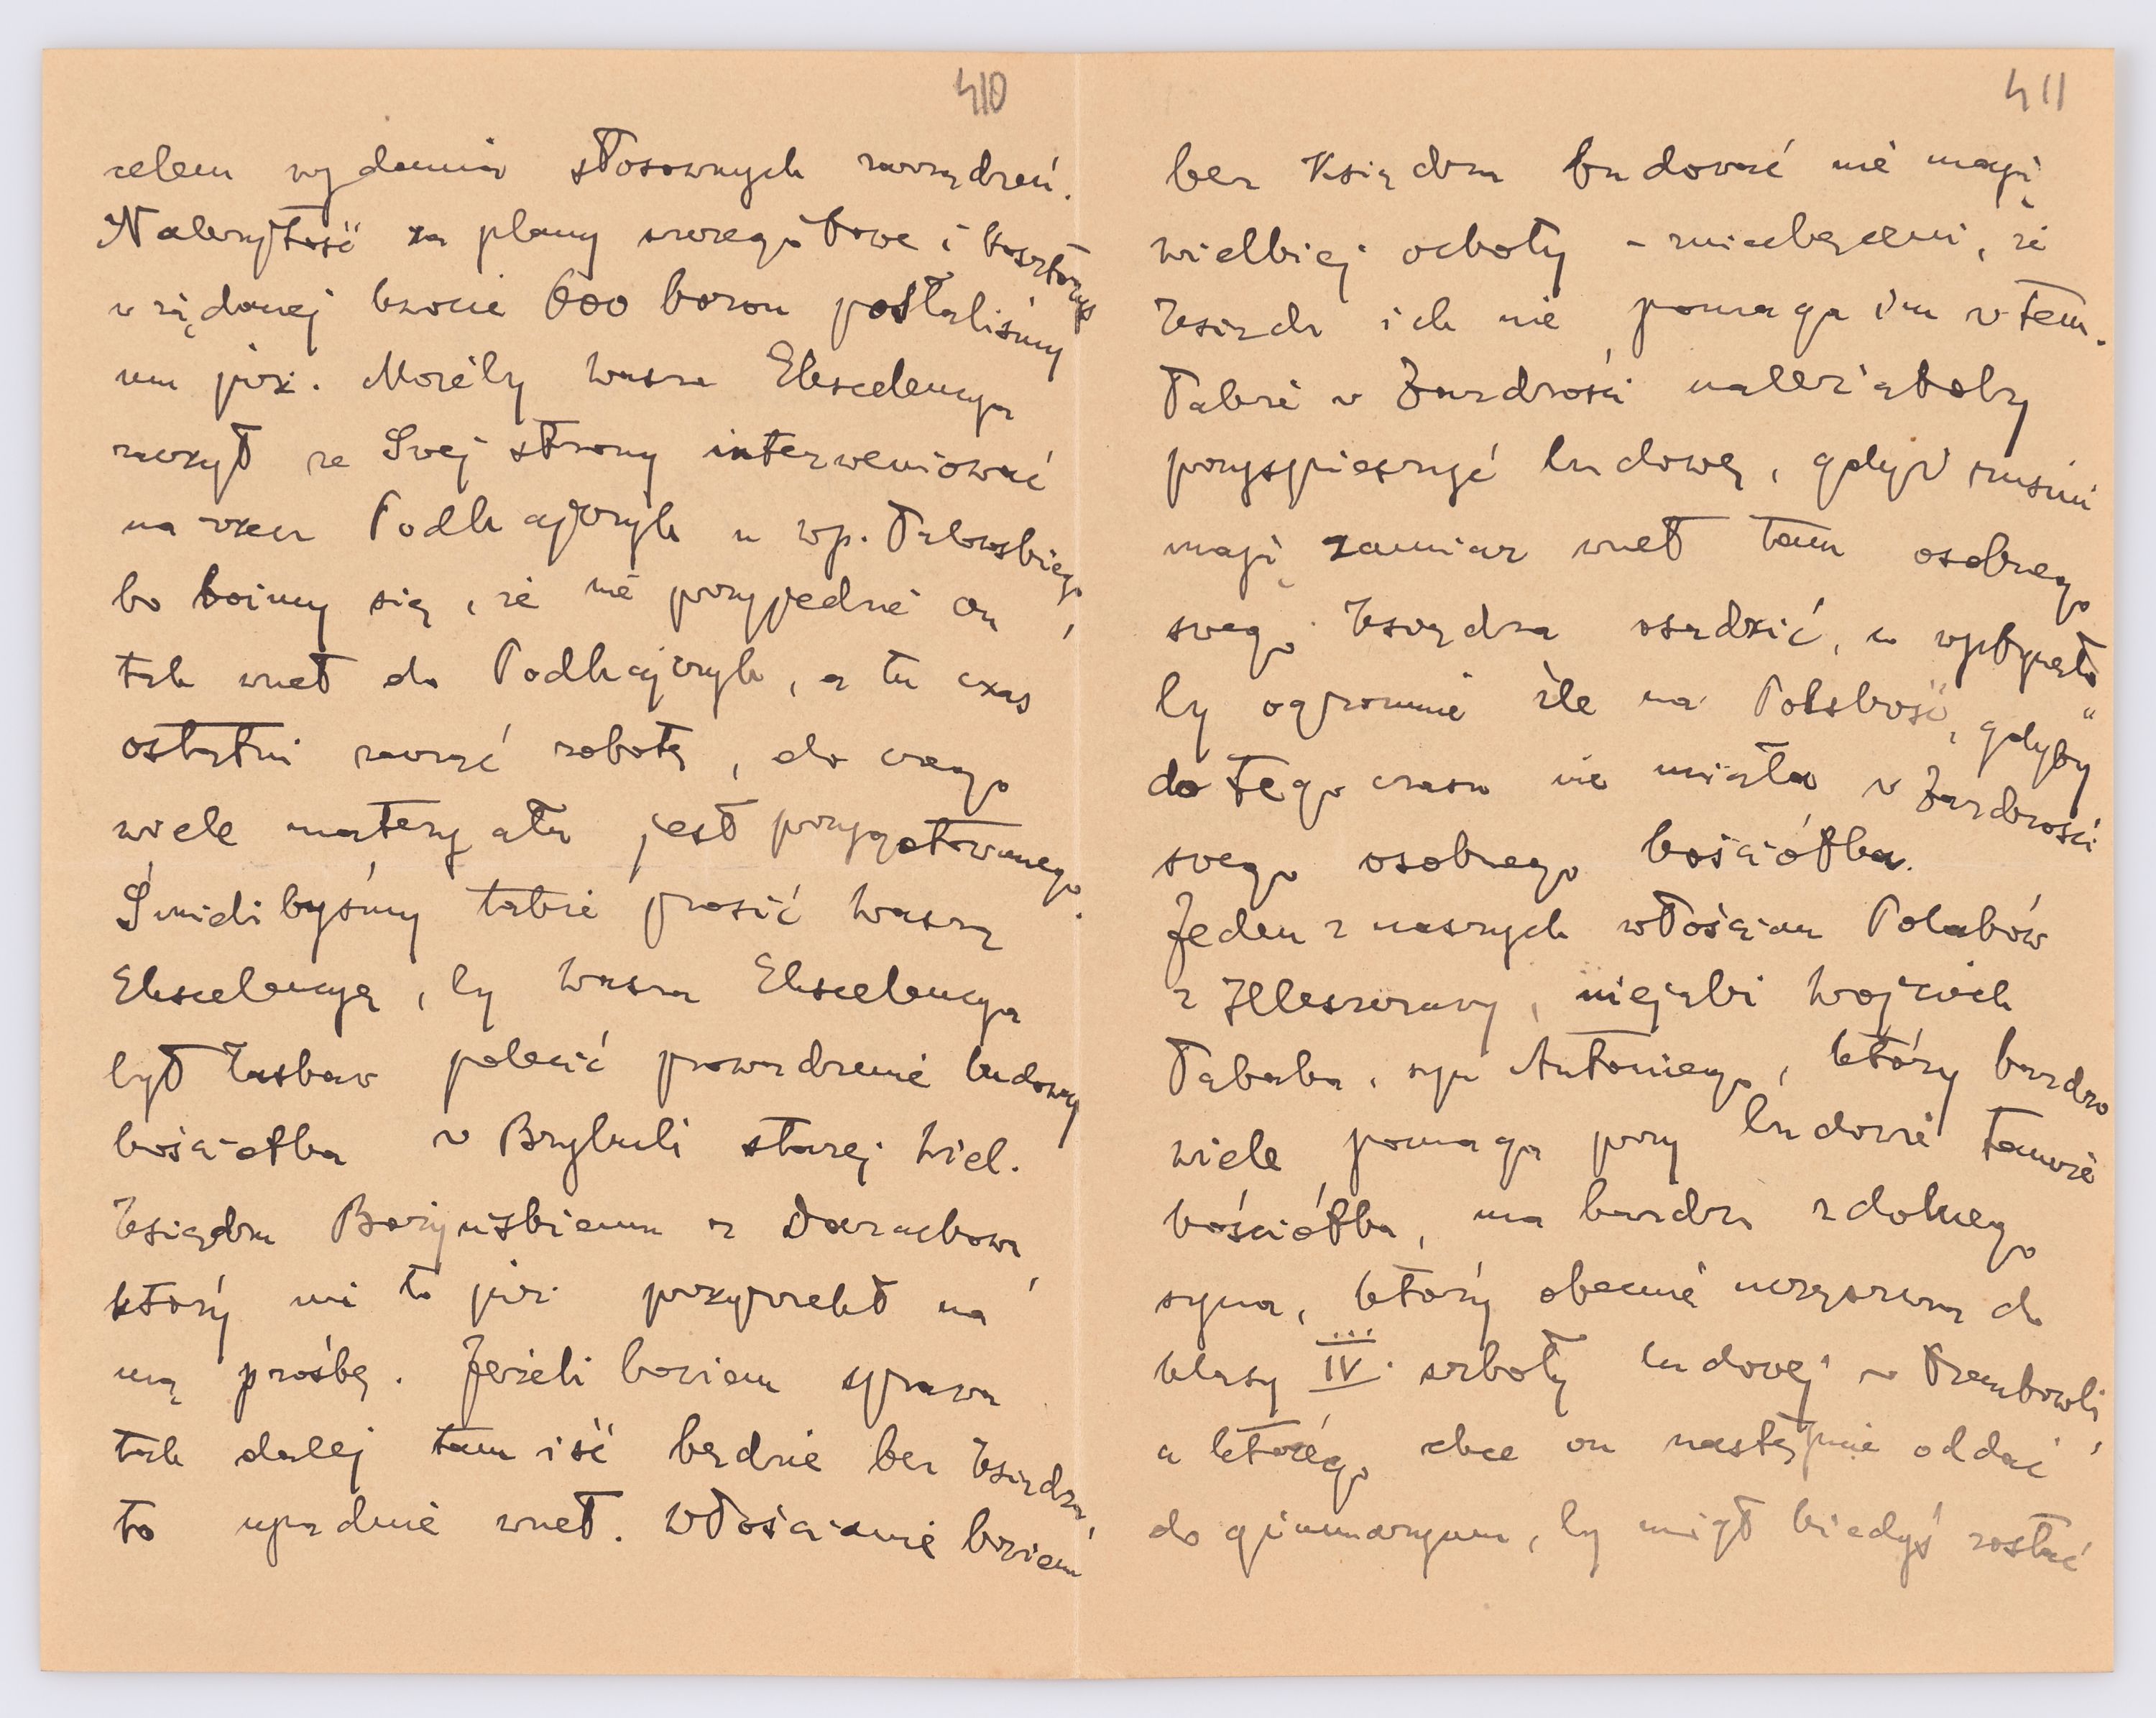 410
celem wydania stosownych zarządzeń.
Należytość za plany szczegółowe i kosztorys
w żądanej kwocie 600 koron posłaliśmy
mu już. Możeby Wasza Ekscelencya
raczył ze Swej strony interweniować
na rzecz Podhajczyk u wp. Talowskiego,
bo boimy się, że nie przyjedzie on
tak wnet do Podhajczyk, a tu czas
ostatni zacząć robotę, do czego
wiele materyału jest przygotowanego.
Śmielibyśmy także prosić Waszą
Ekscelencyę, by Wasza Ekscelencya
był łaskaw polecić prowadzenie budowy
kościołka w Brykuli starej Wiel.
Księdzu Bożyńskiemu z Darachowa,
który mi to już przyrzekł na
mą prośbę. Jeżeli bowiem sprawa
tak dalej tam iść będzie bez Księdza,
to upadnie wnet. Włościanie bowiem
411
bez Księdza budować nie mają
wielkiej ochoty - zniechęceni, że
Ksiądz ich nie pomaga im w tem.
Także w Zazdrości należałoby
przyspieszyć budowę, gdyż rusini
mają zamiar wnet tam osobnego
swego Księdza osadzić, a wpłynęło
by ogromnie źle na Polskość, gdyby
do tego czasu nie miała w Zazdrości
swego osobnego kościółka.
Jeden z naszych włościan Polaków
z Iłleszczawy, niejaki Wojciech
Tabaka, syn Antoniego, który bardzo
wiele pomaga przy budowie tamże
kościółka, ma bardzo zdolnego
syna, który obecnie uczęszcza do
klasy IV. szkoły ludowej w Trembowli,
a którego chce on następnie oddać
do gimnazyum, by mógł kiedyś zostać